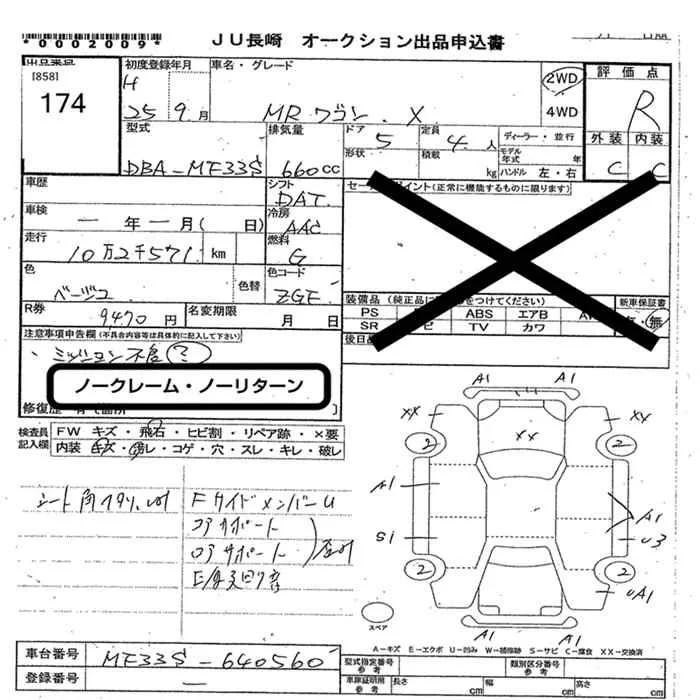 *0002009*
JU長崎 オークション出品申込書
出品番号
[858]
174
初度登録年月
H
25 9月
車名・グレード
MRワゴン . X
2WD
4WD
評価点
R
外装 内装
C C
型式
DBA-MF33S
排気量
660cc
ドア 5
形状
定員 4人
積載 kg
ディーラー・並行
モデル年式 年
ハンドル 左・右
車歴
シフト
DAT
車検
一年一月( 日)
冷房
AAC
走行
10万2千571 km
燃料
G
色
ベージュ
色替
色コード
ZGE
R券
9470円
名変期限
月 日
イント(正常に機能するものに限ります)
装備品(純正品に をつけてください)
PS ABS エアB
SR TV カワ
新車保証書
・無
後日
注意事項申告欄(不具合内容等は具体的に記入して下さい)
ミッション不良(?)
ノークレーム・ノーリターン
修復歴
検査員
記入欄
FW キズ・飛石・ヒビ割・リペア跡・×要
内装・キズ・汚レ・コゲ・穴・スレ・キレ・破レ
シート角スリ
FサイドメンバーU
コアサポート
ロアサポート
A1 A1
XX XX
XX
2 2
A1
A1
S1
U3
2 2
UA1
A1 A1
スペア
A-キズ E-エクボ U-凹み W-補修跡 S-サビ C-腐食 XX-交換済
車台番号
MF33S-640560
登録番号
一
型式指定番号
参考
類別区分番号
参考
車庫証明用
参考
長さ cm 幅 cm 高さ cm